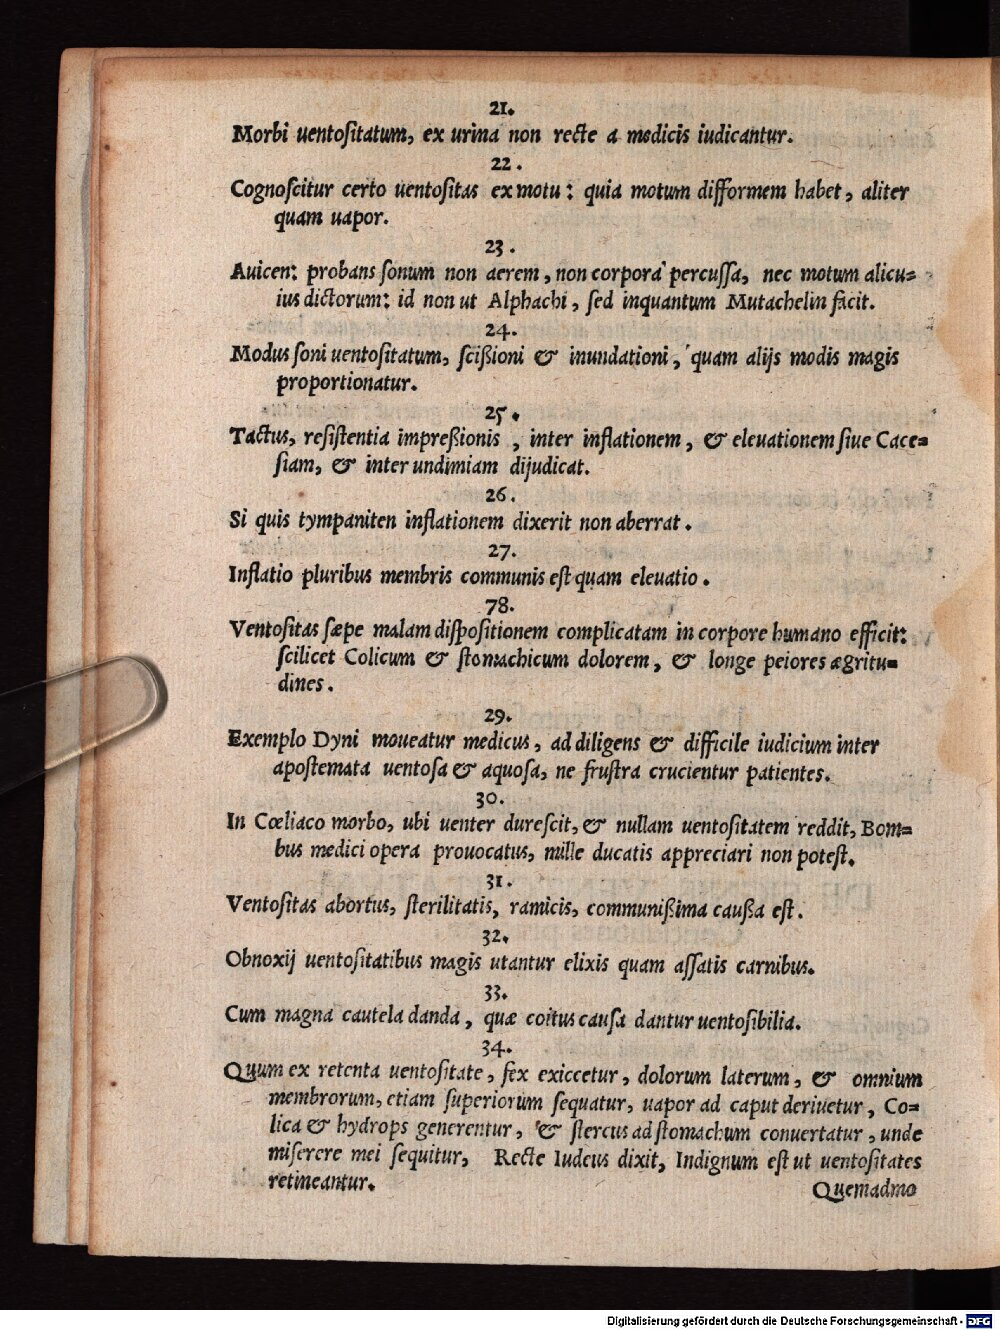 21.
Morbi uentoſitatum, ex urina non recte a medicis iudicantur.
22.
Cognoſcitur certo uentoſitas ex motu: quia motum difformem habet, aliter
quam uapor.
23.
Auicen: probans ſonum non aerem, non corpora percuſſa, nec motum alicu=
ius dictorum: id non ut Alphachi, ſed inquantum Mutachelin facit.
24.
Modus ſoni uentoſitatum, ſcißioni & inundationi, quam alijs modis magis
proportionatur.
25.
Tactus, reſiſtentia impreßionis, inter inflationem, & eleuationem ſiue Cace=
ſiam, & inter undimiam dijudicat.
26.
Si quis tympaniten inflationem dixerit non aberrat.
27.
Inflatio pluribus membris communis eſt quam eleuatio.
78.
Ventoſitas ſæpe malam diſpoſitionem complicatam in corpore humano efficit:
ſcilicet Colicum & ſtomachicum dolorem, & longe peiores ægritu=
dines.
29.
Exemplo Dyni moueatur medicus, ad diligens & difficile iudicium inter
apoſtemata uentoſa & aquoſa, ne fruſtra crucientur patientes.
30.
In Cœliaco morbo, ubi uenter dureſcit, & nullam uentoſitatem reddit, Bom=
bus medici opera prouocatus, mille ducatis appreciari non poteſt.
31.
Ventoſitas abortus, ſterilitatis, ramicis, communißima cauſſa eſt.
32.
Obnoxij uentoſitatibus magis utantur elixis quam aſſatis carnibus.
33.
Cum magna cautela danda, quæ coitus cauſa dantur uentoſibilia.
34.
Quum ex retenta uentoſitate, fex exiccetur, dolorum laterum, & omnium
membrorum, etiam ſuperiorum ſequatur, uapor ad caput deriuetur, Co=
lica & hydrops generentur, & ſtercus ad ſtomachum conuertatur, unde
miſerere mei ſequitur, Recte Iudeus dixit, Indignum eſt ut uentoſitates
retineantur.
Quemadmo
Digitalisierung gefördert durch die Deutsche Forschungsgemeinschaft - DFG